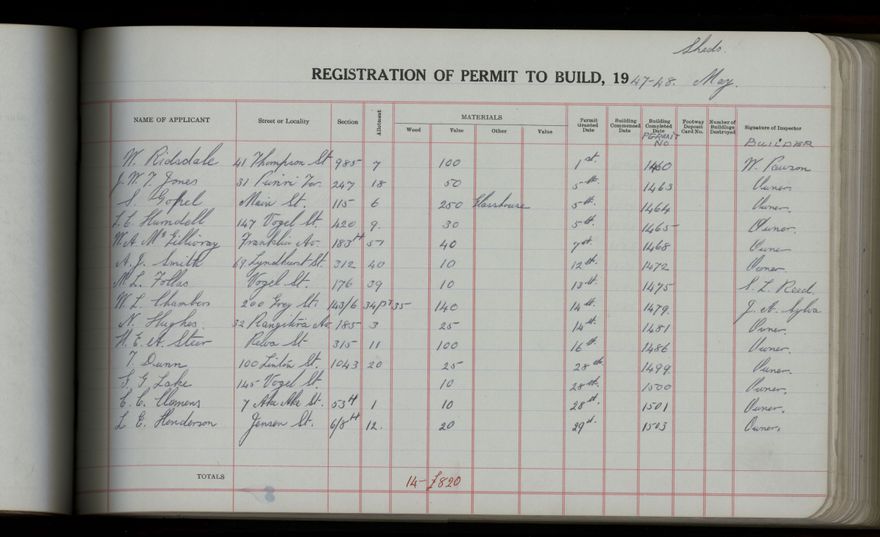 Sheds.
REGISTRATION OF PERMIT TO BUILD, 1947-48. May.
NAME OF APPLICANT Street or Locality Section Allotment MATERIALS Wood Value Other Value Permit Granted Date Building Commenced Date Building Completed Date PERMIT NO Footway Deposit Card No. Number of Buildings Destroyed Signature of Inspector BUILDER
W. Ridsdale 41 Thompson St 985 7 100 1st. 1460 W. Pawson
J. W. T. Jones 31 247 18 50 5th. 1463 Owner
S. Gopel Main St. 115 6 250 Glasshouse 5th. 1464 Owner.
L. E. 147 Vogel St. 420 9. 30 5th. 1465 Owner.
W. A. McGillivray Franklin Av. 183H 57 40 7th. 1468 Owner
A. J. Smith 69 Lyndhurst St. 312 40 10 12th. 1472 Owner
M. L. Follas Vogel St. 176 39 10 13th. 1475 S. L. Reed
W. L. Chambers 200 Grey St. 143/6 34PT35 140 14th. 1479. J. A. Sylva
N. Hughes. 32 Rangitira Av. 185 3 25 14th. 1481 Owner.
H. E. A. Steer Rewa St 315 11 100 16th. 1486 Owner.
T. Dunn 100 Linton St. 1043 20 25 28th 1499 Owner.
S. G. Lake 145 Vogel St. 10 28th. 1500 Owner.
C. C. Clemens 7 Ake Ake St. 53H 1 10 28th. 1501 Owner.
L. E. Henderson Jensen St. 6/8H 12. 20 29th. 1503 Owner.
TOTALS 14- £820